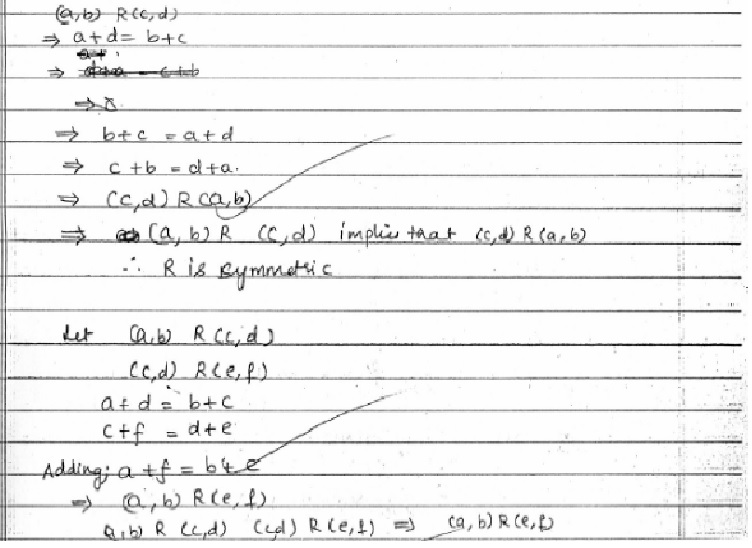 (a,b) R(c,d)
⇒ a+d = b+c
⇒ b+c = a+d
⇒ c+b = d+a.
⇒ (c,d) R (a,b)
⇒ (a,b) R (c,d) implies that (c,d) R (a,b)
∴ R is symmetric
Let (a,b) R (c,d)
(c,d) R(e,f)
a+d = b+c
c+f = d+e
Adding; a+f = b+e
⇒ (a,b) R(e,f)
a,b) R (c,d) (c,d) R(e,f) ⇒ (a,b) R(e,f)